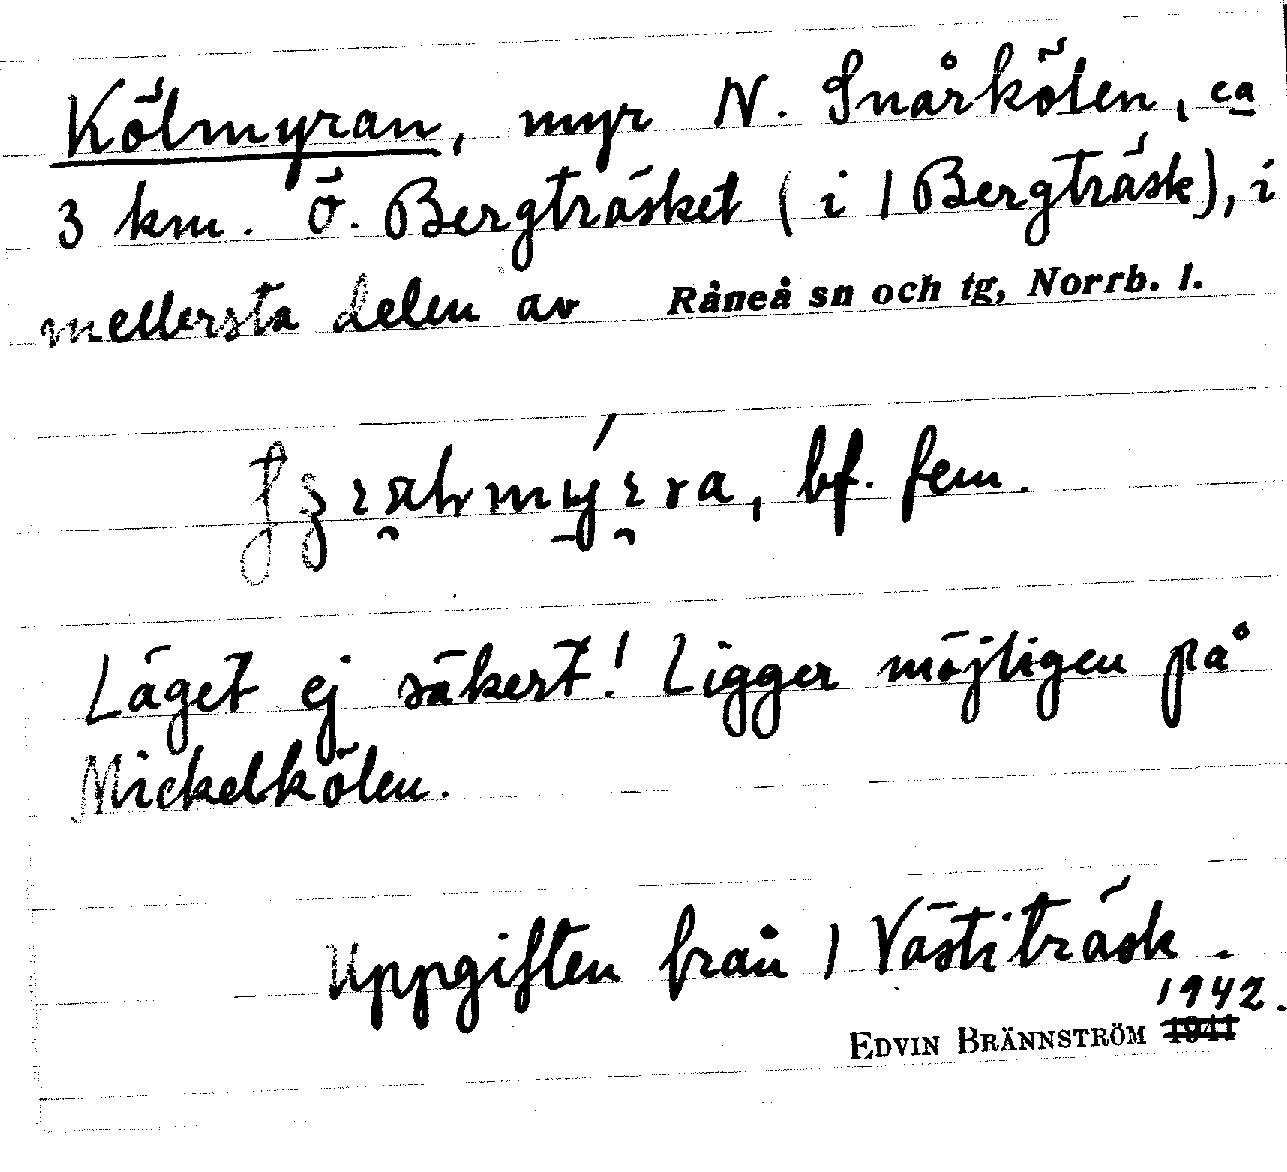 Kölmyran, myr N. Snårkölen, ca
3 km. Ö. Bergträsket (i 1 Bergträsk), i
mellersta delen av Råneå sn och tg, Norrb. l.
bf. fem.
Läget ej säkert! Ligger möjligen på
Mickelkölen.
Uppgiften från 1 Västiträsk.
1942.
EDVIN BRÄNNSTRÖM 1941